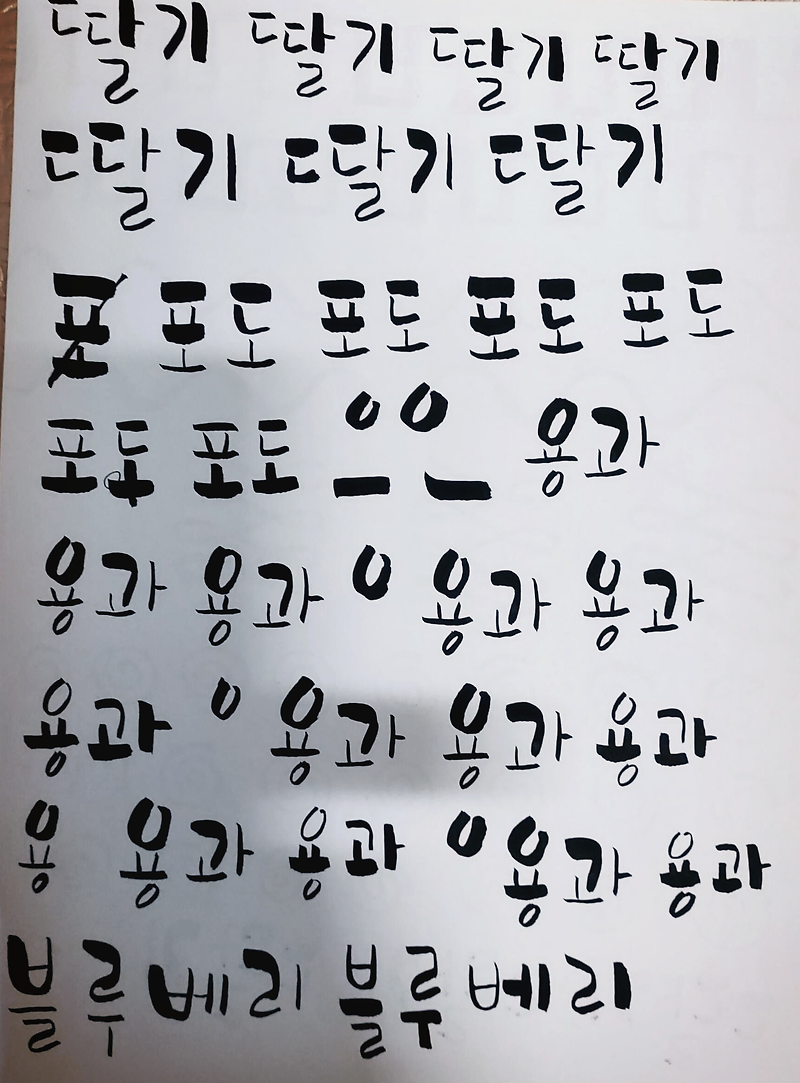 딸기 딸기 딸기 딸기
딸기 딸기 딸기
포 포도 포도 포도 포도
포도 포도 ㅇ ㅇ ㅡ ㅡ 용과
용과 용과 ㅇ 용과 용과
용과 ㅇ 용과 용과 용과
용 용과 용과 ㅇ 용과 용과
블루베리 블루베리